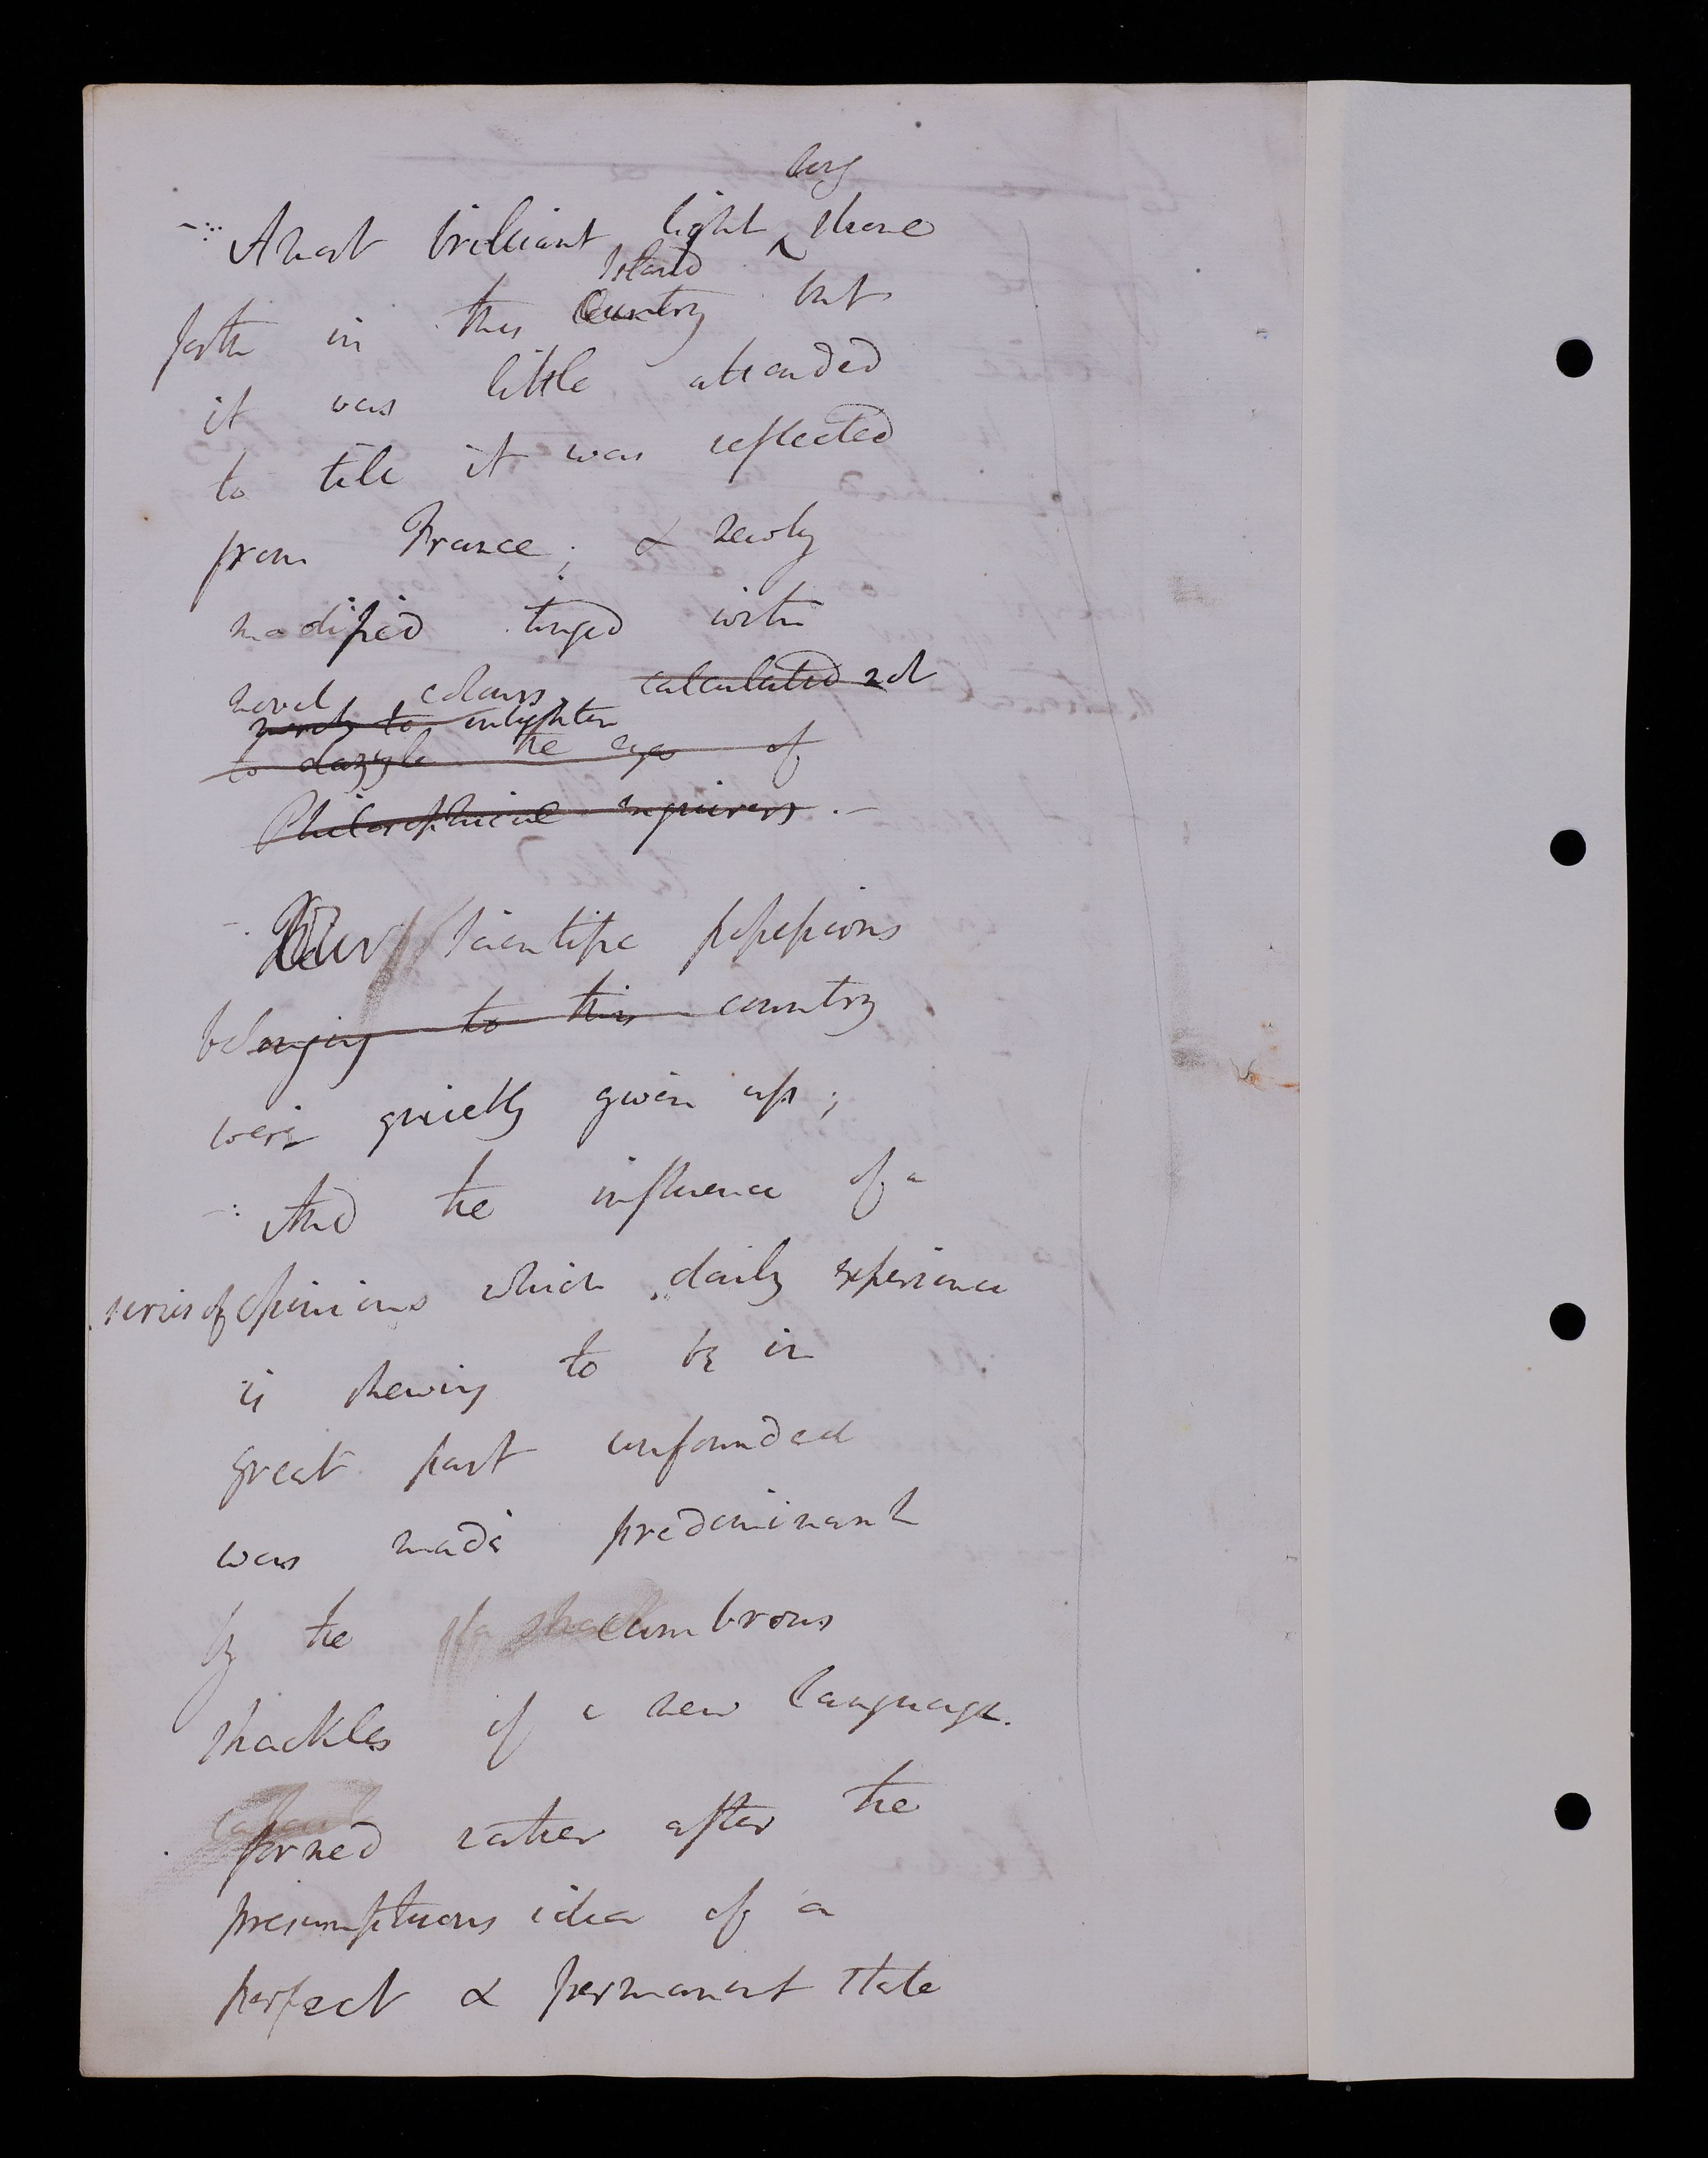 long
-:- A most brilliant light ^ shone
Island
forth in this Country but
it was little attended
to till it was reflected
from France; & newly
modified tinged with
novel colours, calculated not
merely to enlighten
to dazzle the eyes of
Philosophical enquirers. -
-. Our Scientific possessions
belonging to this country
were quietly given up;
-: And the influence of a
series of opinions which daily experience
is shewing to be in
great part unfounded
was made predominant
by the cumbrous
shackles of a new language.
formed rather after the
presumptuous idea of a
perfect & permanent state